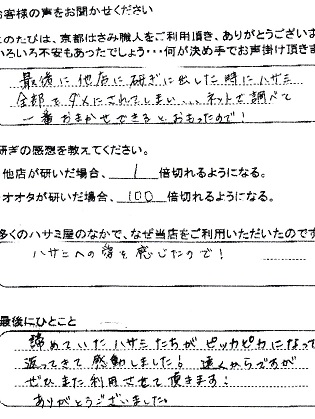 お客様の声をお聞かせください
このたびは、京都はさみ職人をご利用頂き、ありがとうございま
いろいろ不安もあったでしょう・・・何が決め手でお声掛け頂きま
最後に他店に研ぎに出した時にハサミ
全部ダメにされてしまい、、、ネットで調べて
一番おまかせできるとおもったので!
研ぎの感想を教えてください。
他店が研いだ場合、 1 倍切れるようになる。
オオタが研いだ場合、 100 倍切れるようになる。
多くのハサミ屋のなかで、なぜ当店をご利用いただいたのです
ハサミへの愛を感じたので!
最後にひとこと
諦めていたハサミたちがピッカピカになって
返ってきて感動しました! 遠くからですが
ぜひまた利用させて頂きます!
ありがとうございました。